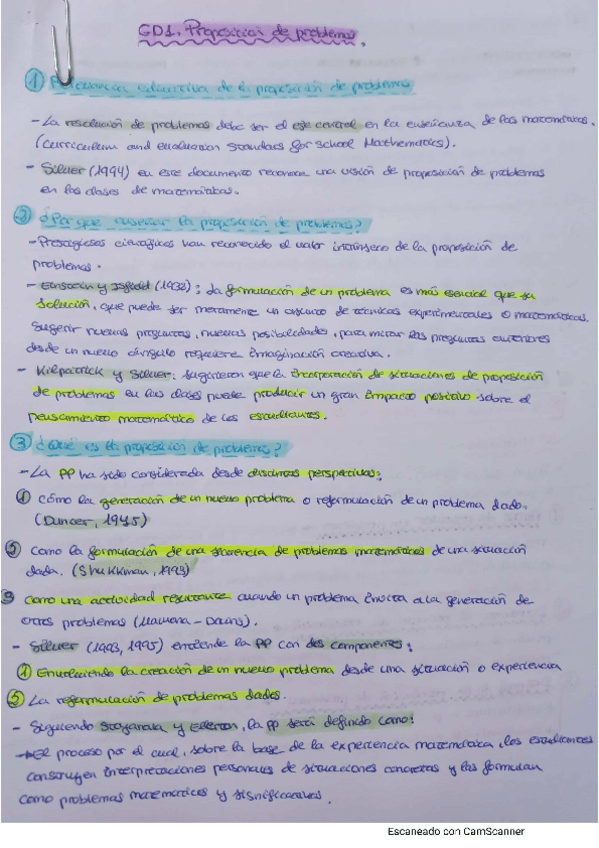 GD1. Proposición de problemas.
① Relevancia educativa de la proposición de problemas
- La resolución de problemas debe ser el eje central en la enseñanza de las matemáticas.
(Curriculum and evaluation standars for school Mathematics).
- Silver (1994) en este documento reconoce una visión de proposición de problemas
en las clases de matemáticas.
② ¿Por qué enseñar la proposición de problemas?
- Prestigiosos científicos han reconocido el valor intrínseco de la proposición de
problemas.
- Einstein y Infield (1938): La formulación de un problema es más esencial que su
solución, que puede ser meramente un asunto de técnicas experimentales o matemáticas.
Sugerir nuevas preguntas, nuevas posibilidades, para mirar las preguntas anteriores
desde un nuevo ángulo requiere imaginación creativa.
- Kilpatrick y Silver: sugirieron que la incorporación de situaciones de proposición
de problemas en las clases puede producir un gran impacto positivo sobre el
pensamiento matemático de los estudiantes.
③ ¿Qué es la proposición de problemas?
- La PP ha sido considerada desde distintas perspectivas:
① cómo la generación de un nuevo problema o reformulación de un problema dado.
(Duncer, 1945)
② Como la formulación de una secuencia de problemas matemáticos de una situación
dada. (Shukkman, 1993)
③ Como una actividad resultante cuando un problema invita a la generación de
otros problemas (Mamona - Downs).
- Silver (1993, 1995) entiende la PP con dos componentes:
① Envolviendo la creación de un nuevo problema desde una situación o experiencia
② La reformulación de problemas dados.
- Siguiendo Stoyanova y Ellerton, la PP será definido como:
→ El proceso por el cual, sobre la base de la experiencia matemática, los estudiantes
construyen interpretaciones personales de situaciones concretas y las formulan
como problemas matemáticos y significativos.
Escaneado con CamScanner